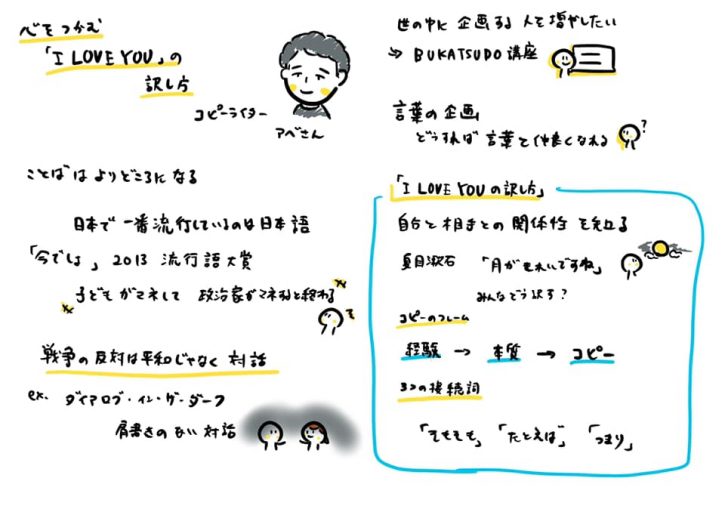 心をつかむ
「I LOVE YOU」の
訳し方
コピーライター
アベさん
ことばは よりどころになる
日本で一番流行しているのは日本語
「今でしょ」2013 流行語大賞
子どもがマネして 政治家がマネると終わる
戦争の反対は平和じゃなく 対話
ex. ダイアログ・イン・ザ・ダーク
肩書きのない対話
世の中に 企画する 人を増やしたい
→ BUKATSUDO 講座
言葉の企画
どうすれば 言葉と仲良くなれる
?
「I LOVE YOUの訳し方」
自分と相手との関係性を知る
夏目漱石 「月がきれいですね」
みんなどう訳す?
コピーのフレーム
経験 → 本質 → コピー
3つの接続詞
「そもそも」「たとえば」「つまり」